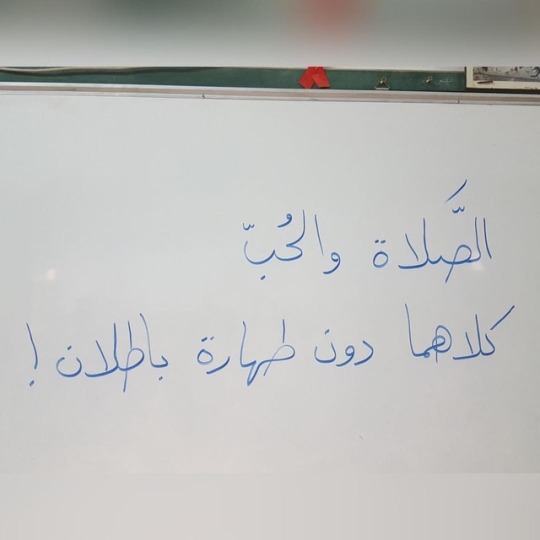 الصَّلاة والحُبّ
كلاهما دون طهارة باطلان !